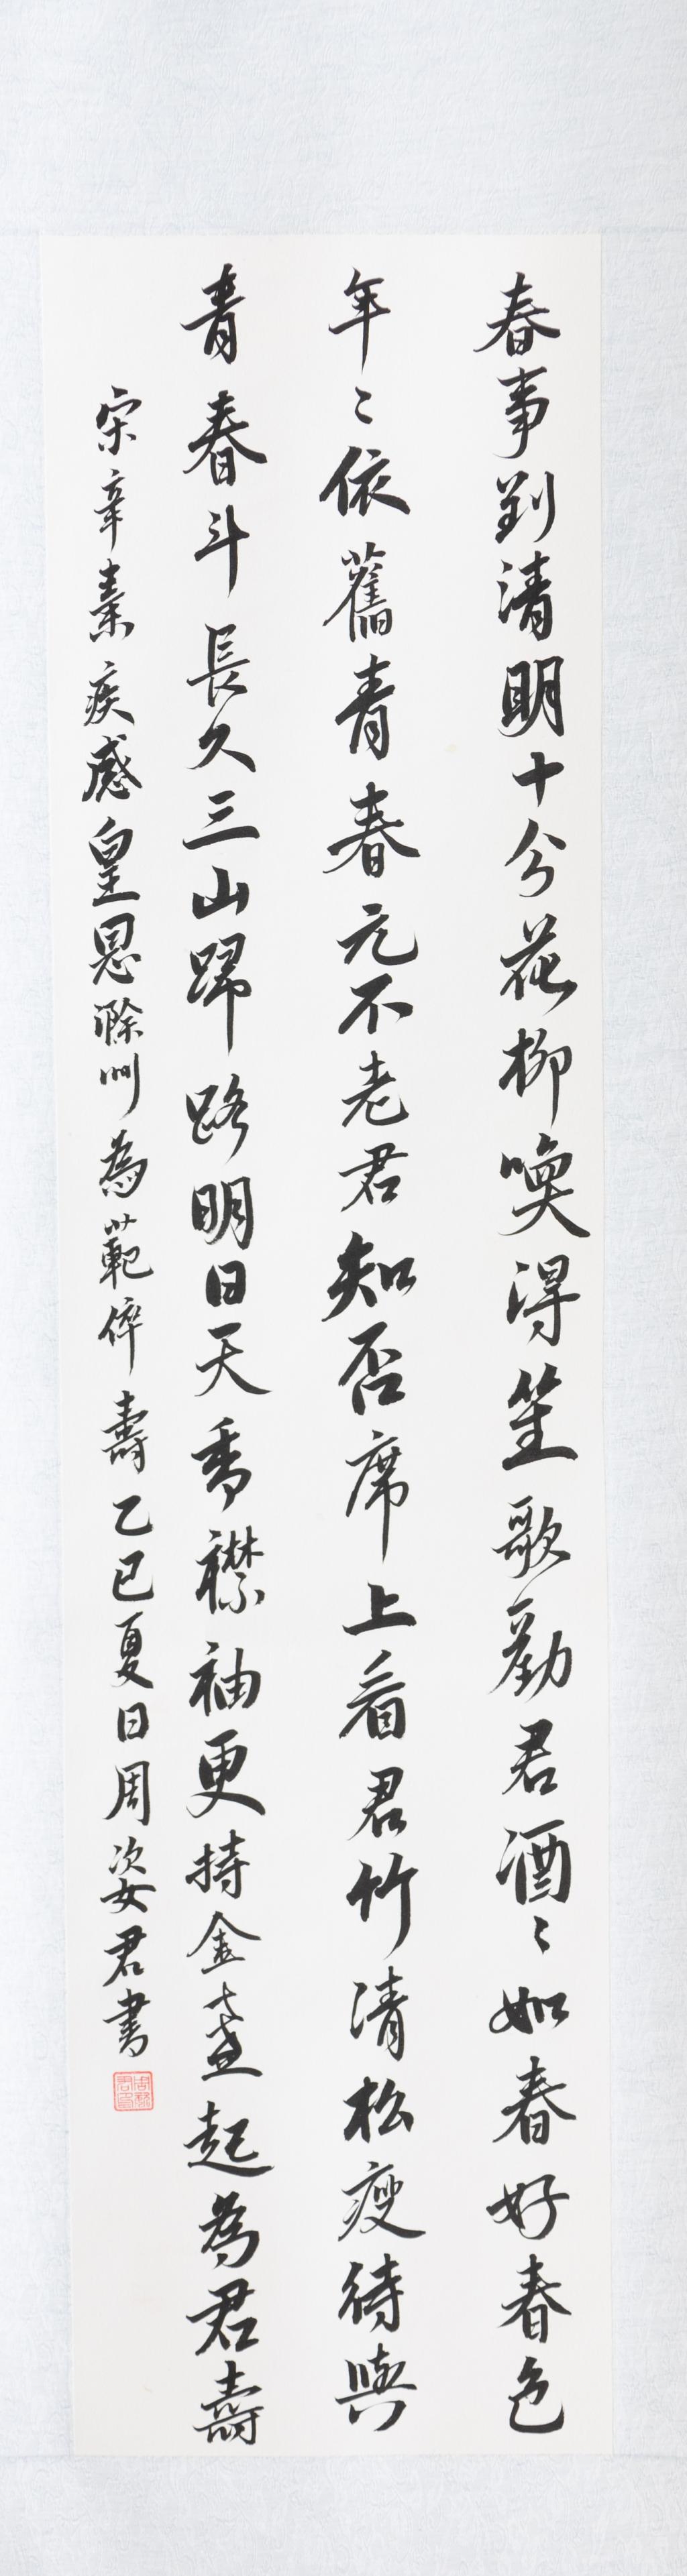 春事到清明十分花柳喚得笙歌勸君酒〻如春好春色
年〻依舊青春元不老君知否席上看君竹清松瘦待與
青春斗長久三山歸路明日天香襟袖更持金盞起為君壽
宋辛棄疾感皇恩滁州為范倅壽乙巳夏日周姿君書